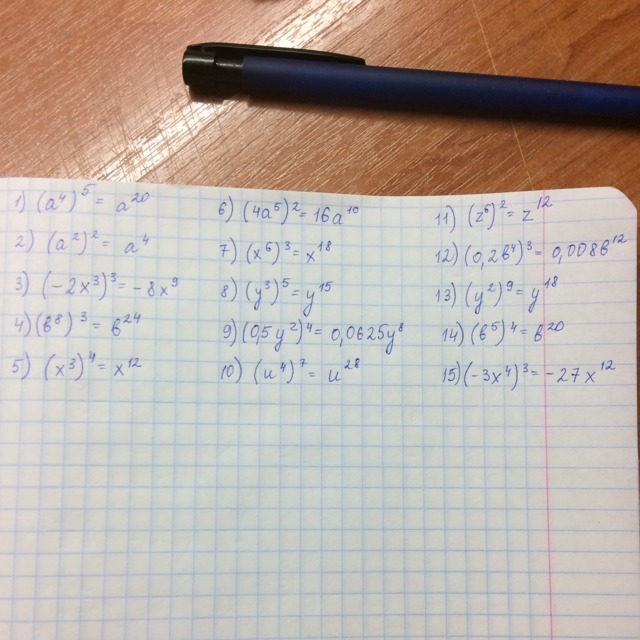 1) (a⁴)⁵ = a²⁰
2) (a²)² = a⁴
3) (-2x³)³ = -8x⁹
4) (в⁸)³ = в²⁴
5) (x³)⁴ = x¹²
6) (4a⁵)² = 16a¹⁰
7) (x⁶)³ = x¹⁸
8) (y³)⁵ = y¹⁵
9) (0,5y²)⁴ = 0,0625y⁸
10) (u⁴)⁷ = u²⁸
11) (z⁶)² = z¹²
12) (0,2в⁴)³ = 0,008в¹²
13) (y²)⁹ = y¹⁸
14) (в⁵)⁴ = в²⁰
15) (-3x⁴)³ = -27x¹²